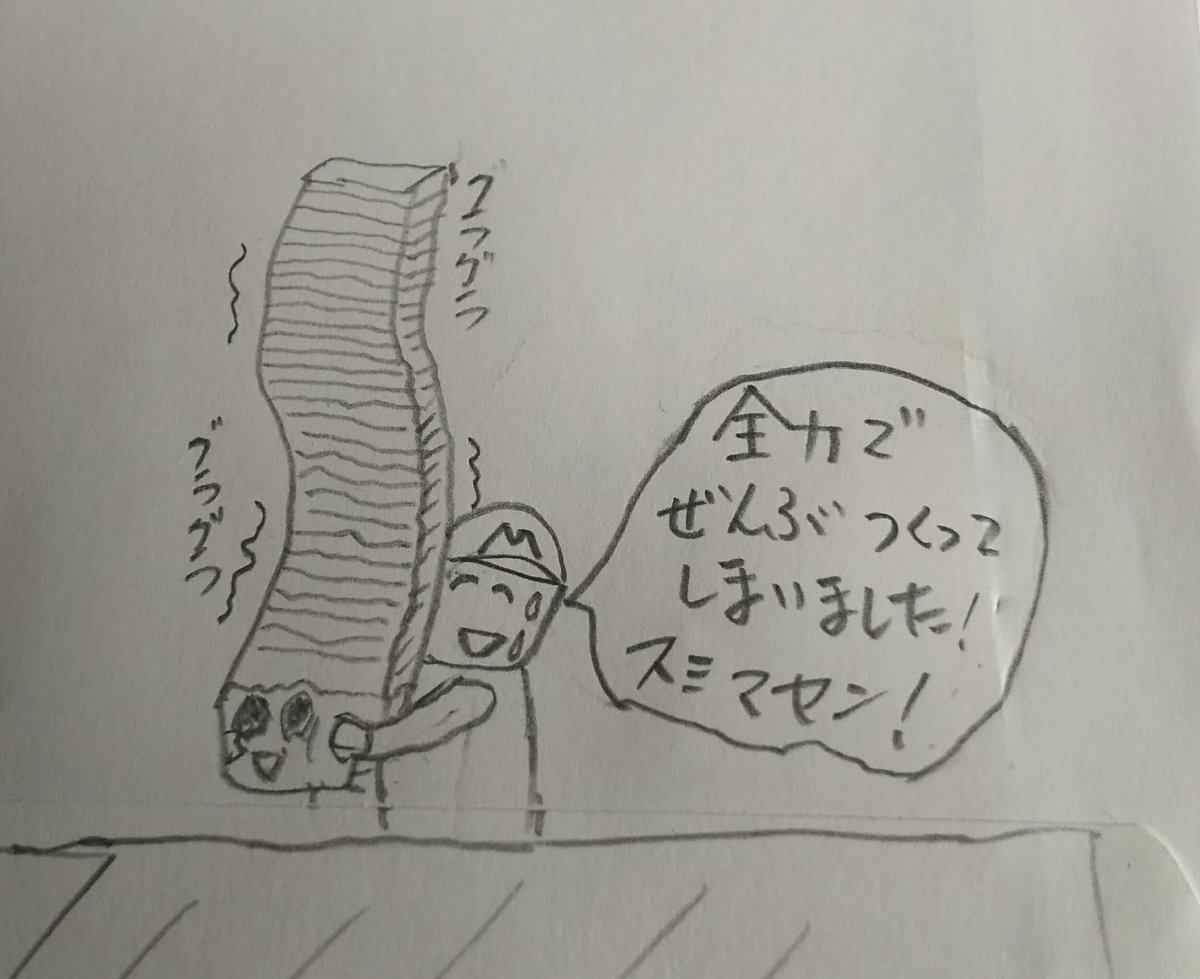 グラグラ
グラグラ
M
全力で
ぜんぶつくって
しまいました!
スミマセン!